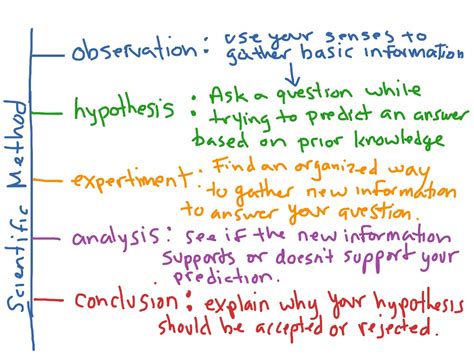 Scientific Method
observation: use your senses to
gather basic information
hypothesis: Ask a question while
trying to predict an answer
based on prior knowledge
expertiment: Find an organized way
to gather new information
to answer your question.
analysis: see if the new information
supports or doesn't support your
prediction.
conclusion: explain why your hypothesis
should be accepted or rejected.